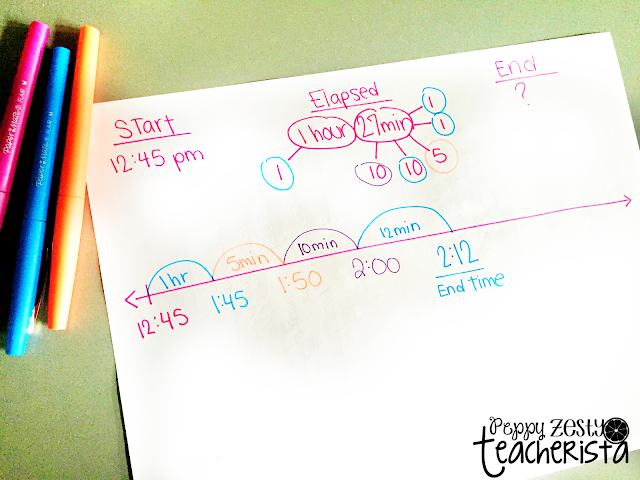 Start
12:45 pm
Elapsed
1 hour 27min
1
10
10
5
1
1
End
?
1hr
5min
10min
12min
12:45
1:45
1:50
2:00
2:12
End time
PAPER MATE FLAIR M
PAPER MATE FLAIR M
Peppy Zesty
Teacherista